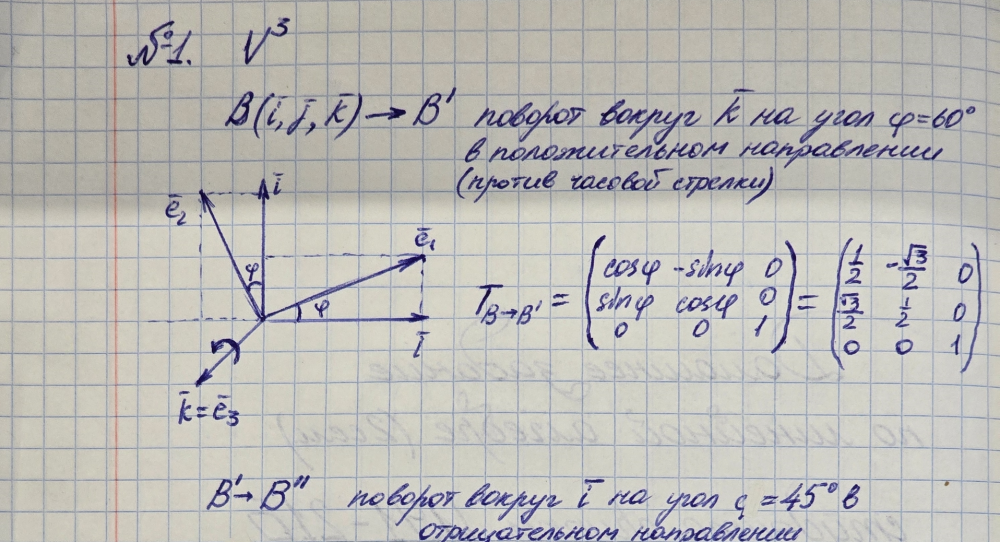 №1. V³
B(i̅, j̅, k̅) → B' поворот вокруг k̅ на угол φ=60°
в положительном направлении
(против часовой стрелки)
e̅₂ i̅
e̅₁
φ
φ
i̅
k̅=e̅₃
T_{B→B'} = (cosφ -sinφ 0; sinφ cosφ 0; 0 0 1) = (1/2 -√3/2 0; √3/2 1/2 0; 0 0 1)
B' → B'' поворот вокруг i̅ на угол =45° в
отрицательном направлении